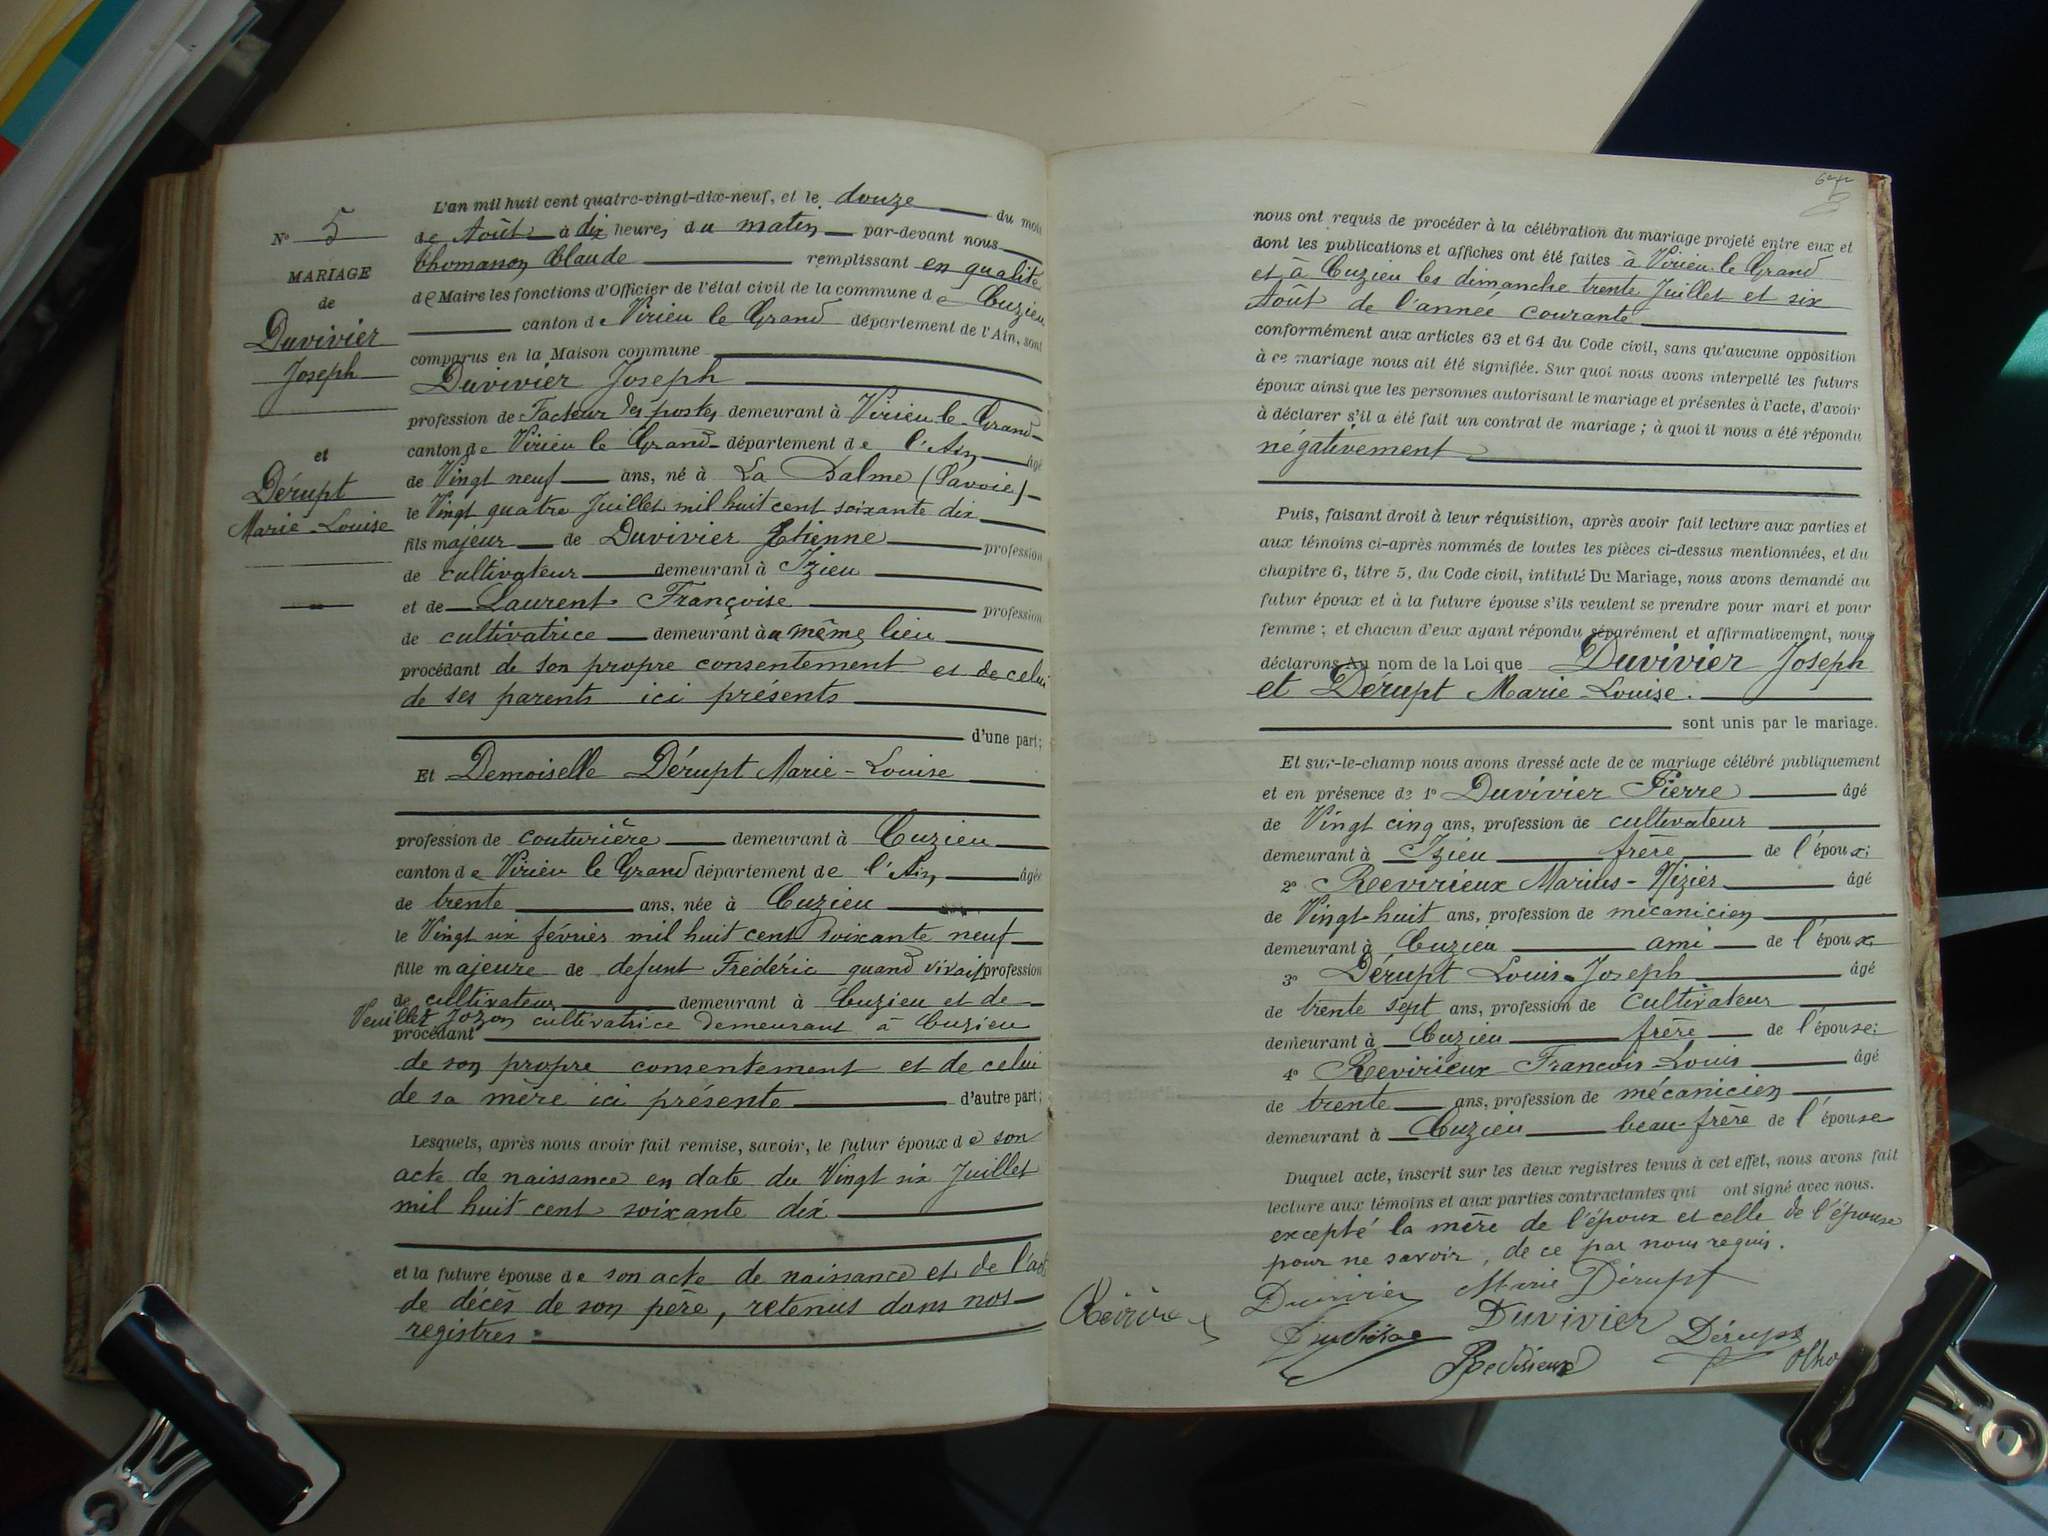 L'an mil huit cent quatre-vingt-dix-neuf, et le douze du mois
de Août à dix heures du matin par-devant nous
Thomasson Claude remplissant en qualité
de Maire les fonctions d'Officier de l'état civil de la commune de Cuzieu
canton de Virieu le Grand département de l'Ain, sont
comparus en la Maison commune
Duvivier Joseph
profession de Facteur des postes demeurant à Virieu-le-Grand
canton de Virieu le Grand département de l'Ain âgé
de Vingt neuf ans, né à La Balme (Savoie)
le Vingt quatre Juillet mil huit cent soixante dix
fils majeur de Duvivier Etienne profession
de cultivateur demeurant à Izieu
et de Laurent Françoise profession
de cultivatrice demeurant au même lieu
procédant de son propre consentement et de celui
de ses parents ici présents
d'une part;
Et Demoiselle Dérupt Marie-Louise
profession de couturière demeurant à Cuzieu
canton de Virieu le Grand département de l'Ain âgée
de trente ans, née à Cuzieu
le Vingt six février mil huit cent soixante neuf
fille majeure de defunt Frédéric quand vivait profession
de cultivateur demeurant à Cuzieu et de
Veuillet Jozon cultivatrice demeurant à Cuzieu
procédant
de son propre consentement et de celui
de sa mère ici présente d'autre part;
Lesquels, après nous avoir fait remise, savoir, le futur époux de son
acte de naissance en date du Vingt six Juillet
mil huit cent soixante dix
et la future épouse de son acte de naissance et de l'acte
de décès de son père, retenus dans nos
registres
N° 5
MARIAGE
de
Duvivier
Joseph
et
Dérupt
Marie-Louise
nous ont requis de procéder à la célébration du mariage projeté entre eux et
dont les publications et affiches ont été faites à Virieu-le-Grand
et à Cuzieu les dimanche trente Juillet et six
Août de l'année courante
conformément aux articles 63 et 64 du Code civil, sans qu'aucune opposition
à ce mariage nous ait été signifiée. Sur quoi nous avons interpellé les futurs
époux ainsi que les personnes autorisant le mariage et présentes à l'acte, d'avoir
à déclarer s'il a été fait un contrat de mariage; à quoi il nous a été répondu
négativement
Puis, faisant droit à leur réquisition, après avoir fait lecture aux parties et
aux témoins ci-après nommés de toutes les pièces ci-dessus mentionnées, et du
chapitre 6, titre 5, du Code civil, intitulé Du Mariage, nous avons demandé au
futur époux et à la future épouse s'ils veulent se prendre pour mari et pour
femme; et chacun d'eux ayant répondu séparément et affirmativement, nous
déclarons Au nom de la Loi que Duvivier Joseph
et Dérupt Marie-Louise.
sont unis par le mariage.
Et sur-le-champ nous avons dressé acte de ce mariage célébré publiquement
et en présence de 1° Duvivier Pierre âgé
de Vingt cinq ans, profession de cultivateur
demeurant à Izieu frère de l'époux;
2° Revirieux Marius-Nizier âgé
de Vingt-huit ans, profession de mécanicien
demeurant à Cuzieu ami de l'époux
3° Dérupt Louis-Joseph âgé
de trente sept ans, profession de cultivateur
demeurant à Cuzieu frère de l'épouse;
4° Revirieux François-Louis âgé
de trente ans, profession de mécanicien
demeurant à Cuzieu beau-frère de l'épouse
Duquel acte, inscrit sur les deux registres tenus à cet effet, nous avons fait
lecture aux témoins et aux parties contractantes qui ont signé avec nous.
excepté la mère de l'époux et celle de l'épouse
pour ne savoir, de ce par nous requis.
Duvivier Marie Dérupt
Duvivier Dérupt